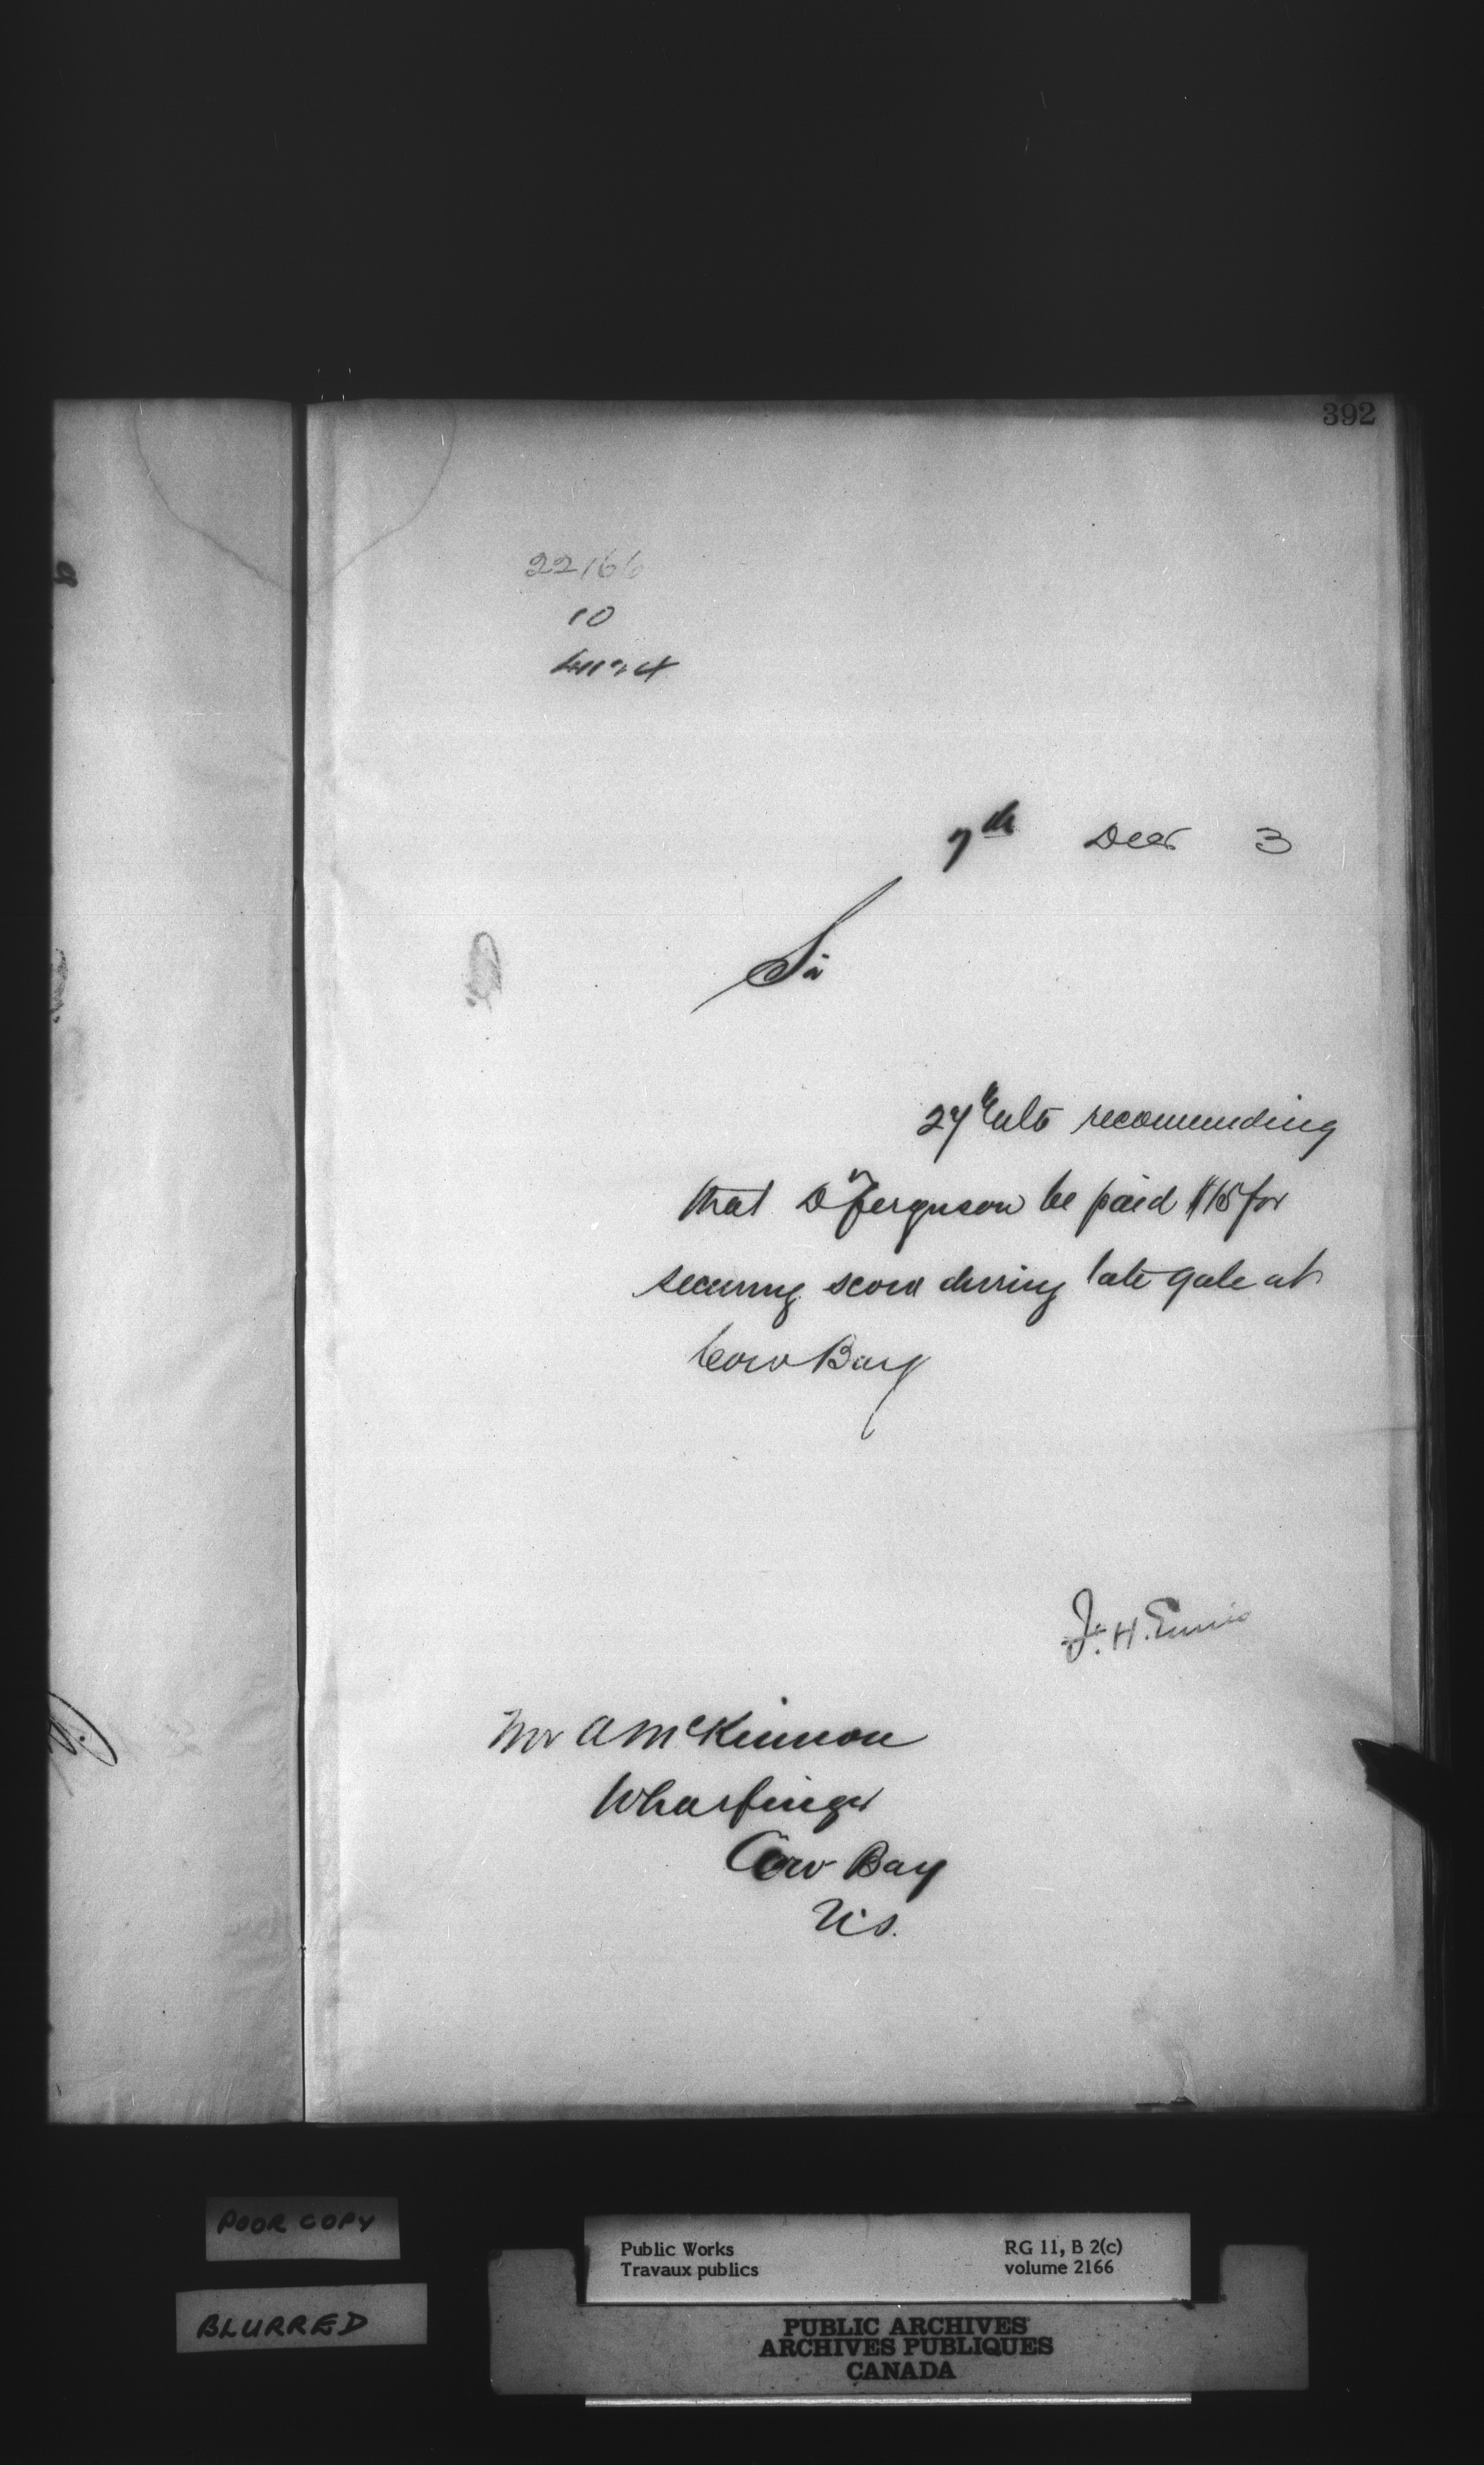 392
22166
10
7th Decr 3
Sir
27th ulto recommending
that D Ferguson be paid $15 for
securing scow during late gale at
Cow Bay
F. H. Ennis
Mr A McKinnon
Wharfinger
Cow Bay
N.S.
POOR COPY
BLURRED
Public Works
Travaux publics
RG 11, B 2(c)
volume 2166
PUBLIC ARCHIVES
ARCHIVES PUBLIQUES
CANADA